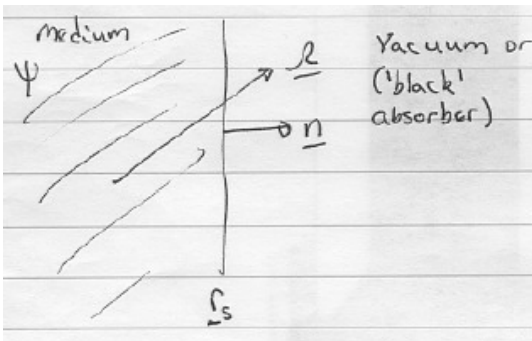 medium
Ψ
Ω
n
Vacuum or
('black'
absorber)
r_s